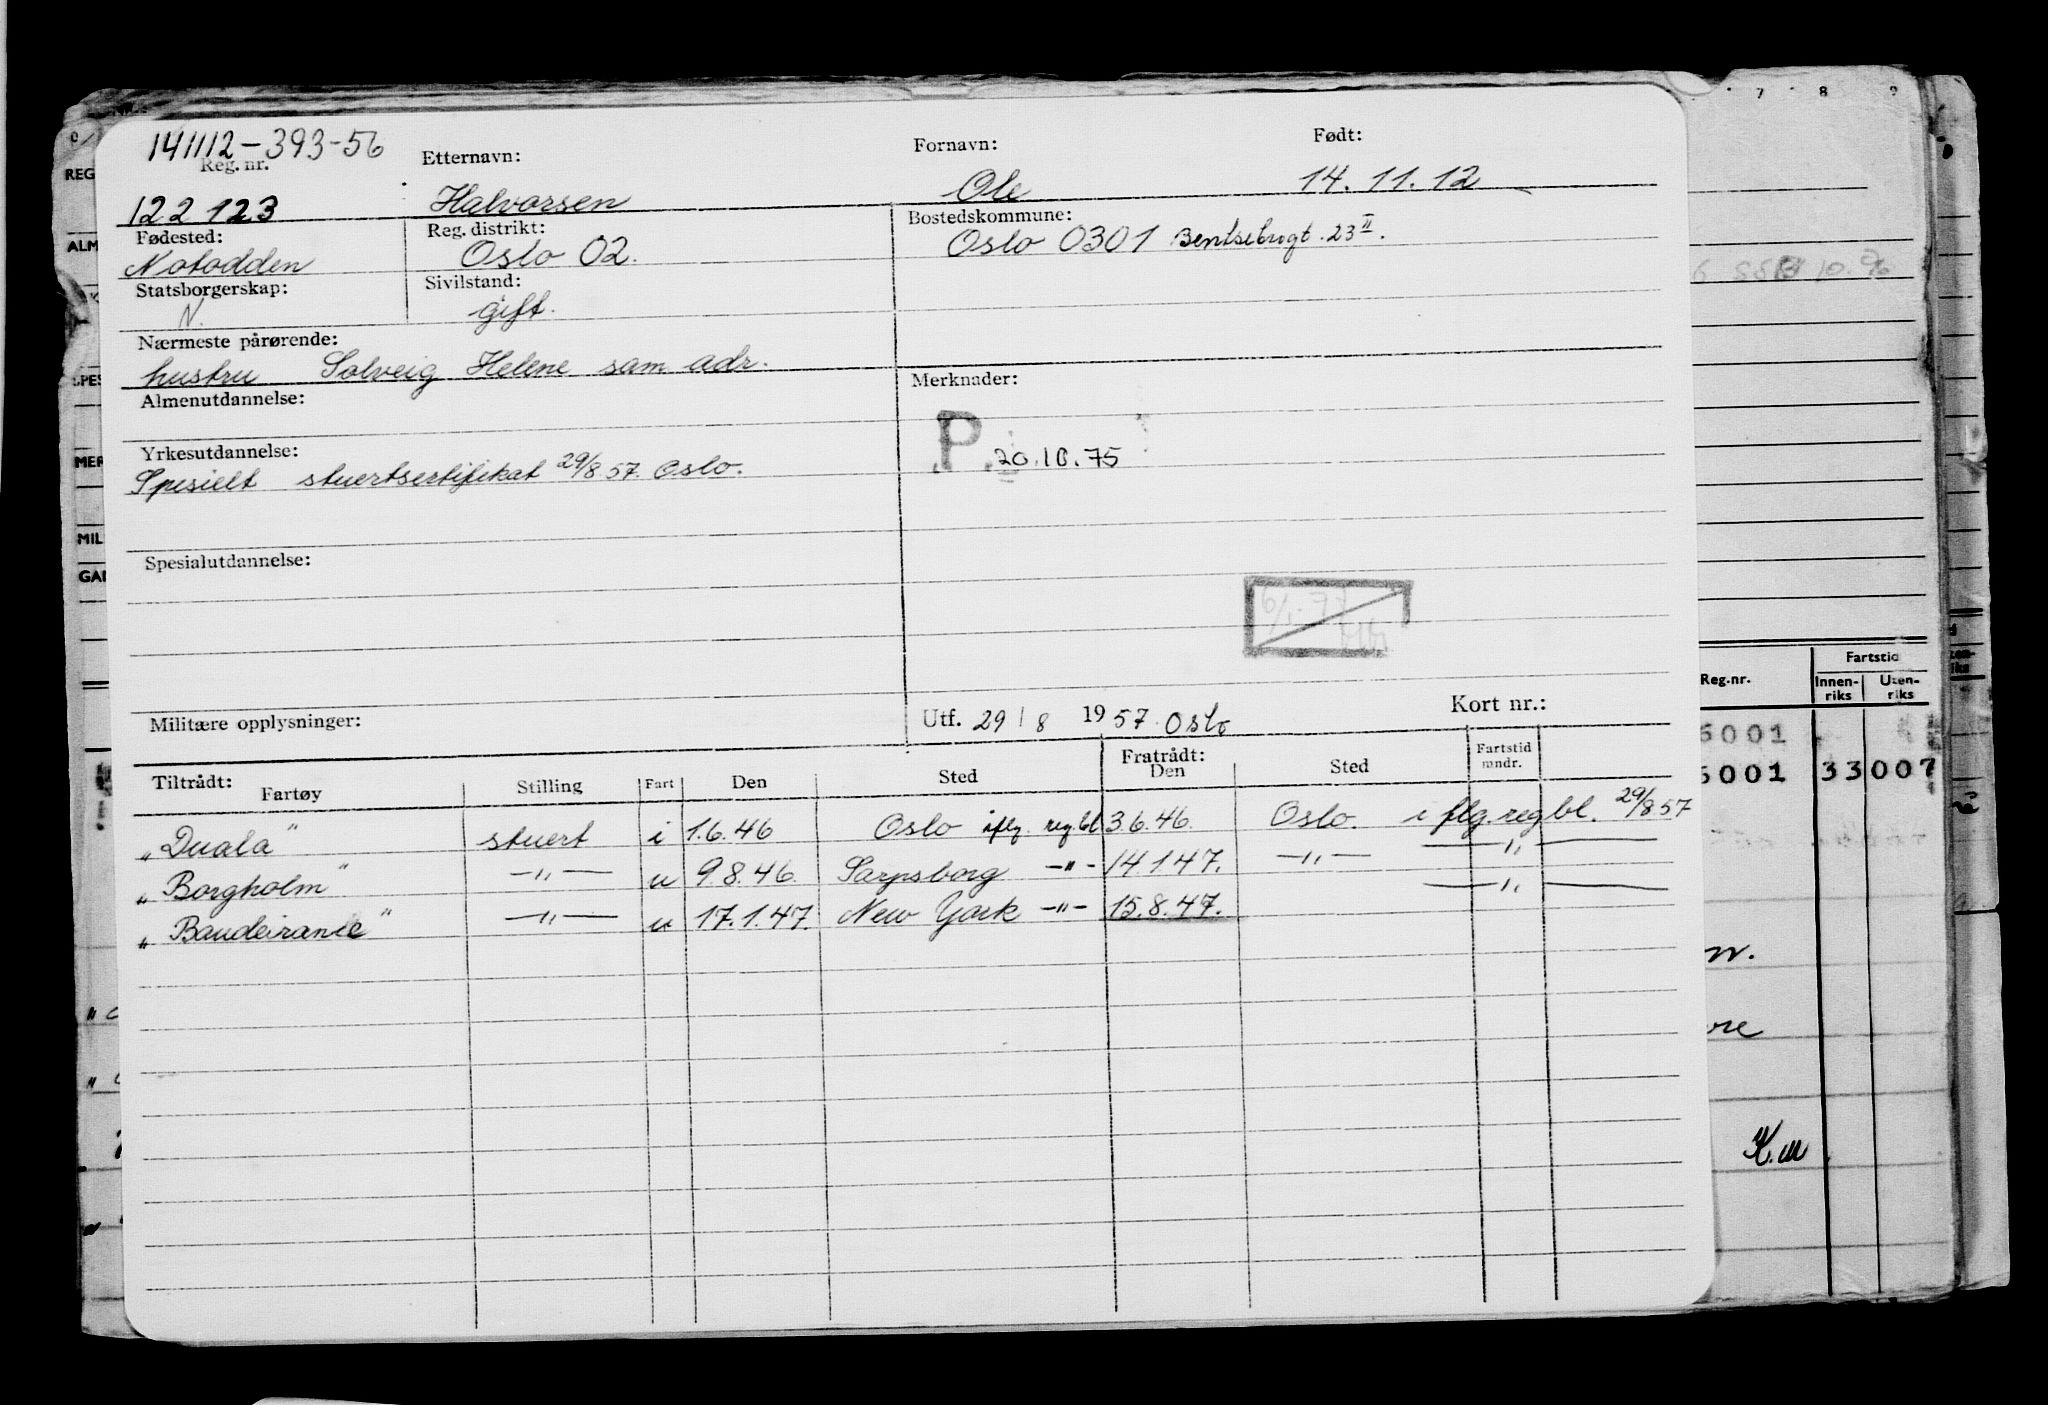 141112-393-56
Reg. nr. Etternavn: Fornavn: Født:
122 123 Halvorsen Ole 14.11.12
Fødested: Reg. distrikt: Bostedskommune:
Notodden Oslo 02. Oslo 0301 Bentsebrugt. 23 II.
Statsborgerskap: Sivilstand:
N. gift.
Nærmeste pårørende:
hustru Solveig Helene sam. adr.
Almenutdannelse: Merknader:
P. 20.10.75
Yrkesutdannelse:
Spesielt stuertsertifikat 29/8 57. Oslo.
Spesialutdannelse:
6/1-77
Militære opplysninger: Utf. 29/8 1957. Oslo Kort nr.:
Tiltrådt: Fratrådt:
Fartøy Stilling Fart Den Sted Den Sted Fartstid mndr.
"Duala" stuert i 1.6.46 Oslo iflg. reg.bl 3.6.46. Oslo. iflg. reg bl. 29/8 57
"Borgholm" —"— u 9.8.46. Sarpsborg -"- 14 1 47. —"— —"—
"Baudeirante" —"— u 17.1.47. New York -"- 15.8.47. —"—
7 8 9
REG
ALM
SPES
MER
MIL
GAN
Reg.nr. Fartstid
Innen-riks Uten-riks
6001
6001 33 007
K.m